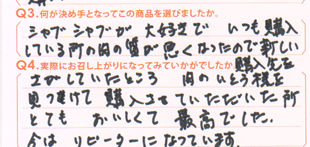 Q3.何が決め手となってこの商品を選びましたか。
シャブシャブが 大好きで いつも購入
している所の肉の質が悪くなったので新しい
Q4.実際にお召し上がりになってみていかがでしたか 購入先を
さがしていたところ 肉のいとう様を
見つけて 購入させていただいた所
とても おいしくて 最高でした。
今は リピーターになっています。